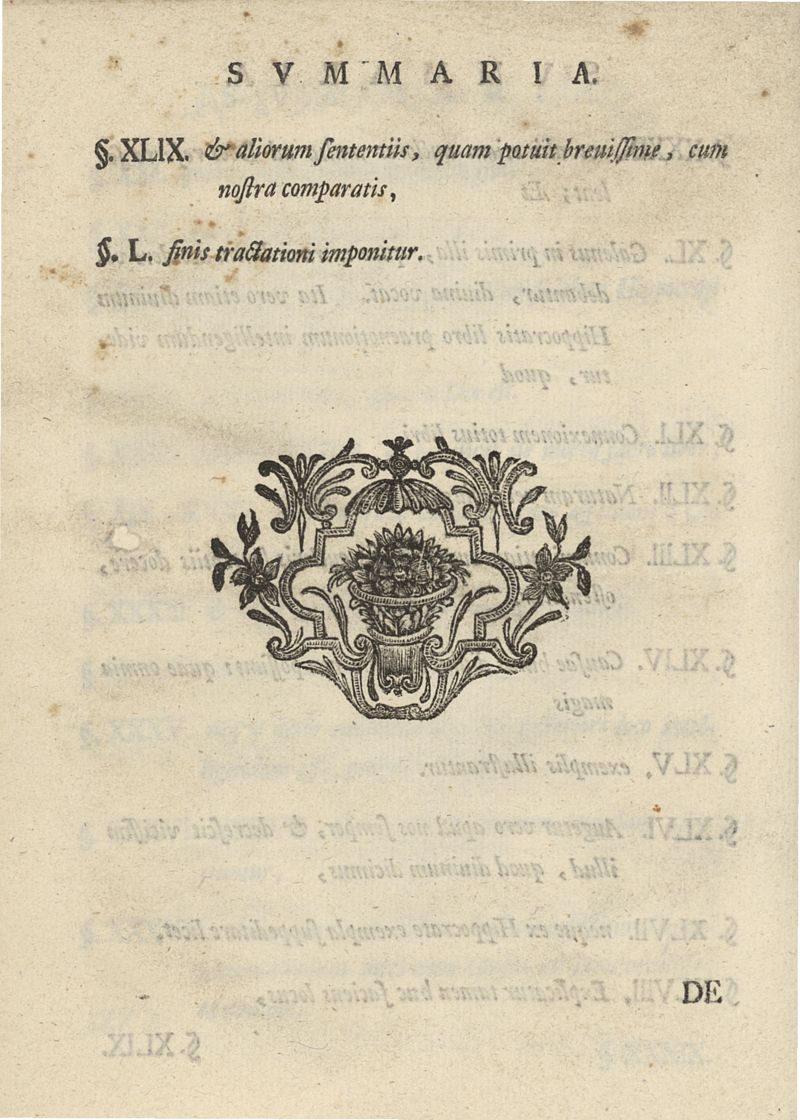 SVMMARIA.
§. XLIX. & aliorum ſententiis, quam potuit breuiſſime, cum
noſtra comparatis,
§. L. finis tractationi imponitur.
DE